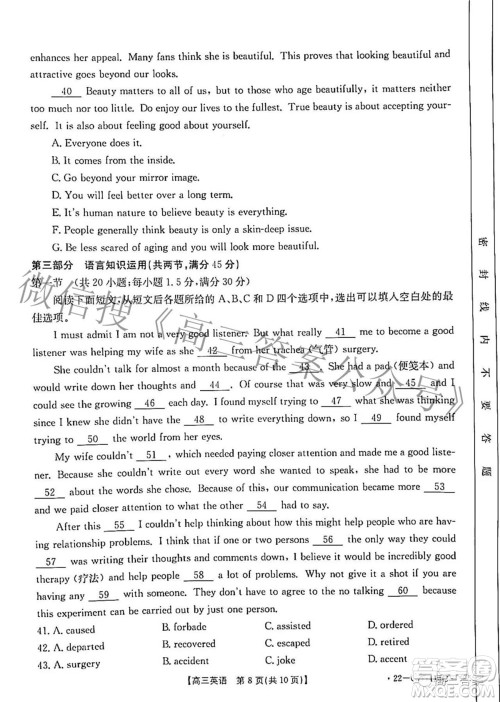 enhances her appeal. Many fans think she is beautiful. This proves that looking beautiful and
attractive goes beyond our looks.
40 Beauty matters to all of us, but to those who age beautifully, it matters neither
too much nor too little. Do enjoy our lives to the fullest. True beauty is about accepting your-
self. It's about feeling good about yourself.
A. Everyone does it.
B. It comes from the inside.
C. Go beyond your mirror image.
D. You will feel better.
E. It's human nature to believe beauty is everything.
F. People generally think beauty is only a skin-deep issue.
G. Be less scared of aging and you will look more beautiful.
第三部分 语言知识运用(共两节,满分45分)
第一节 (共20小题;每小题1.5分,满分30分)
阅读下面短文,从短文后各题所给的A、B、C和D四个选项中,选出可以填入空白处的最
佳选项。
I must admit I am not a very good listener. But I was really 41 me to become a good
listener when I was helping my wife as she 42 from her trachea (气管) surgery.
She couldn't talk for almost a month because of the 43. She had a pad (便笺本) and
would write down her thoughts and 44. Of course that was very slow and 45 and I
found myself 46 each day. I found myself trying to 47 what she was thinking but
since I knew she didn't want to write everything down, I 48 and 49 found myself
trying to 50 the world from her eyes.
My wife couldn't 51 it, but I was really paying attention to her and became a good liste-
ner. Because she couldn't write out every word she wanted to speak, she had to be more
52 about the words she chose. Because of this, our communication became more 53
and we paid closer attention to what the other 54 had to say.
After this 55 I thought about how this might help people who are hav-
ing relationship problems. I think that if one or two persons 56 the only way they could
57 was by writing their things and comments down, I believe it would be incredibly good
therapy (疗法) and help people 58 a lot about not sweating the "little" details that
are 59 with someone. They don't have to do any talking to 60 because
this experiment can be carried out by just one person.
41. A. caused B. forbade C. assisted D. ordered
42. A. departed B. recovered C. escaped D. retired
43. A. surgery B. accident C. joke D. accent
【高三英语 第8页(共10页)】
·22-
密封线内不要答题
微信搜《高三答案公众号》